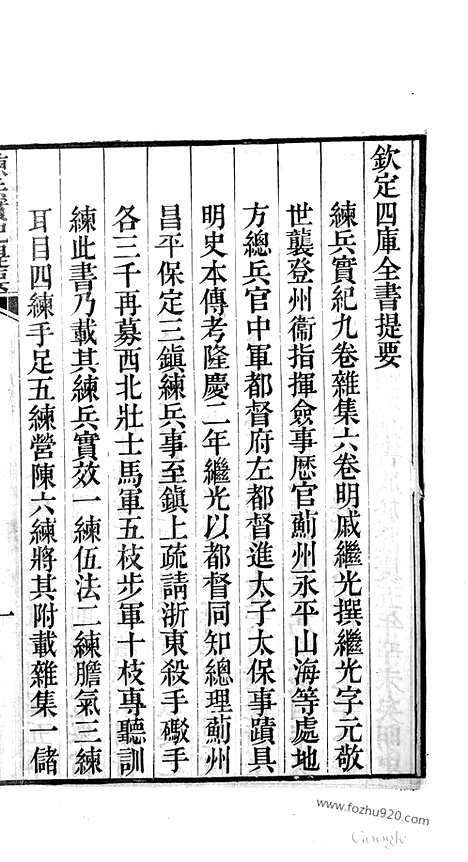 欽定四庫全書提要
練兵實紀九卷雜集六卷明戚繼光撰繼光字元敬
世襲登州衞指揮僉事歷官薊州永平山海等處地
方總兵官中軍都督府左都督進太子太保事蹟具
明史本傳考隆慶二年繼光以都督同知總理薊州
昌平保定三鎮練兵事至鎮上疏請浙東殺手礮手
各三千再募西北壯士馬軍五枝步軍十枝專聽訓
練此書乃載其練兵實效一練伍法二練膽氣三練
耳目四練手足五練營陳六練將其附載雜集一儲
一
www.fozhu920.com
Google